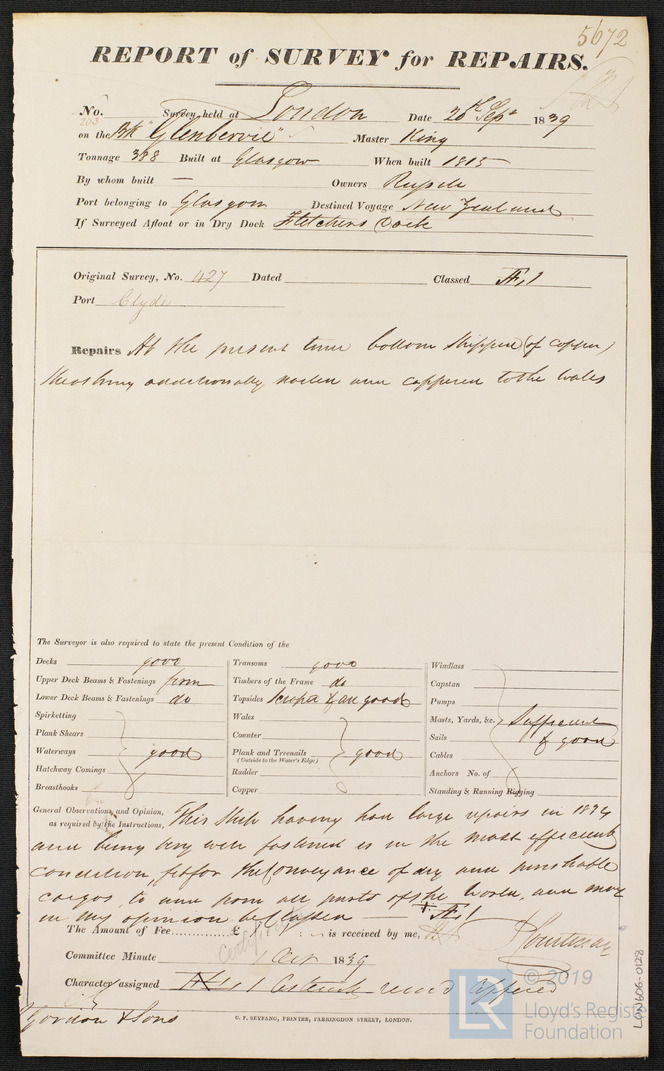 5672
REPORT of SURVEY for REPAIRS.
No. 203 Survey held at London Date 26th Sepr 1839
on the Bk "Glenbervie" Master King
Tonnage 388 Built at Glasgow When built 1815
By whom built — Owners
Port belonging to Glasgow Destined Voyage New Zealand
If Surveyed Afloat or in Dry Dock Fletchers Dock
Original Survey, No. 427 Dated Classed Æ,1
Port Clyde
Repairs At the present time bottom stripped (of copper)
additionally nailed and coppered to the wales
The Surveyor is also required to state the present Condition of the
Decks good
Upper Deck Beams & Fastenings from
Lower Deck Beams & Fastenings do
Spirketting
Plank Shears
Waterways good
Hatchway Comings
Breasthooks
Transoms good
Timbers of the Frame do
Topsides scraped & are good
Wales
Counter
Plank and Treenails good
(Outside to the Water's Edge)
Rudder
Copper
Windlass
Capstan
Pumps
Masts, Yards, &c. Sufficient
Sails & good
Cables
Anchors No. of
Standing & Running Rigging
General Observations and Opinion, This Ship having had large repairs in 1834
as required by the Instructions,
and being very well fastened is in the most efficient
condition, fit for the Conveyance of dry and perishable
cargos, to and from all parts of the World, and may
in my opinion be Classed — Æ,1
The Amount of Fee............£ : : is received by me,
Certificate
Committee Minute 1 Oct 1839
Character assigned Æ 1
Gordon & Sons
G. F. SEYFANG, PRINTER, FARRINGDON STREET, LONDON.
LON606-0128
© 2019
LR Lloyd's Register
Foundation